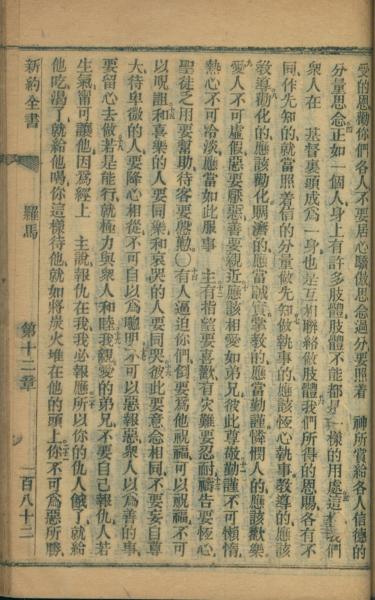 愛的恩勸你們各人不要居心驕傲思念過分要照着 神所賞給各人信德的
分量思念正如一個人身上有許多肢體肢體不能都 一樣的用處這 我們
衆人在 基督裏頭成爲一身也是互相聯絡做肢體我們所得的恩賜各有不
同作先知的就當照着信的分量做先知做執事的應該恆心執事教導的應該
教導勸化的應該勸化賙濟的應當誠實掌教的應當勤謹憐憫人的應該歡樂
愛人不可虛假惡要厭惡善要親近應該相愛如弟兄彼此尊敬勤謹不可懶惰
熱心不可冷淡應當如此服事 主有指望要喜歡有災難要忍耐禱告要恆心
聖徒乏用要幫助待客要慇勤〇有人逼迫你們倒要爲他祝福可以祝福不可
以咒詛和喜樂的人要同樂和哀哭的人要同哭彼此要意念相同不要妄自尊
大待卑微的人要降心相從不可自以爲聰明不可以惡報惡衆人以爲善的事
要留心去做若是能行就極力與衆人和睦我親愛的弟兄不要自己報仇人若
生氣甯可讓他因爲經上 主說報仇在我我必報應所以你的仇人餓了就給
他吃渴了就給他喝你這樣待他就如將炭火堆在他的頭上你不可爲惡所勝
新約全書 羅馬 第十二章 一百八十二